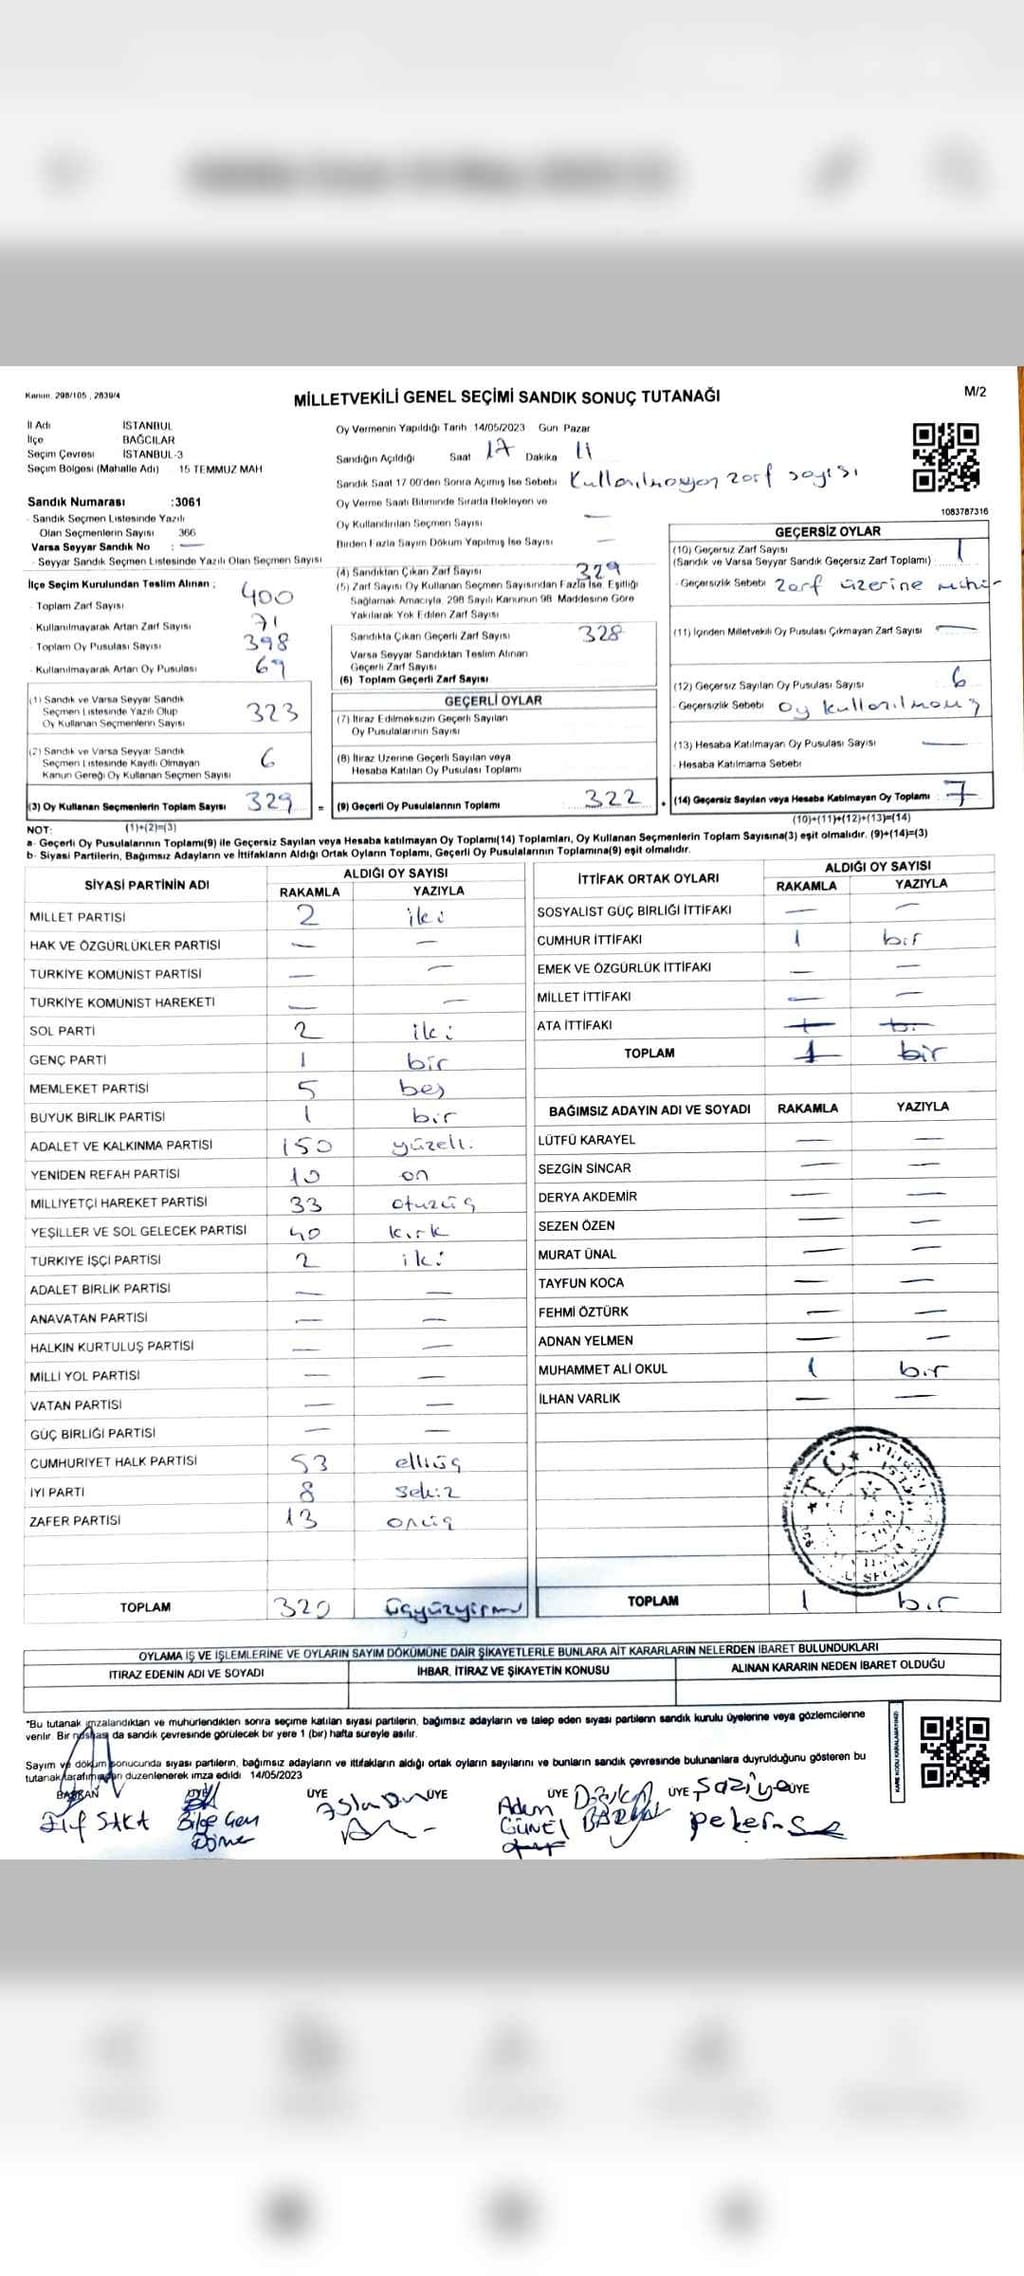 Kanun. 298/105 , 2839/4
MİLLETVEKİLİ GENEL SEÇİMİ SANDIK SONUÇ TUTANAĞI
M/2
İl Adı İSTANBUL
İlçe BAĞCILAR
Seçim Çevresi İSTANBUL-3
Seçim Bölgesi (Mahalle Adı) 15 TEMMUZ MAH
Sandık Numarası :3061
- Sandık Seçmen Listesinde Yazılı
Olan Seçmenlerin Sayısı 366
Varsa Seyyar Sandık No : —
- Seyyar Sandık Seçmen Listesinde Yazılı Olan Seçmen Sayısı
İlçe Seçim Kurulundan Teslim Alınan ;
- Toplam Zarf Sayısı 400
- Kullanılmayarak Artan Zarf Sayısı 71
- Toplam Oy Pusulası Sayısı 398
- Kullanılmayarak Artan Oy Pusulası 69
(1) Sandık ve Varsa Seyyar Sandık
Seçmen Listesinde Yazılı Olup
Oy Kullanan Seçmenlerin Sayısı 323
(2) Sandık ve Varsa Seyyar Sandık
Seçmen Listesinde Kayıtlı Olmayan
Kanun Gereği Oy Kullanan Seçmen Sayısı 6
(3) Oy Kullanan Seçmenlerin Toplam Sayısı 329 =
(1)+(2)=(3)
Oy Vermenin Yapıldığı Tarih 14/05/2023 Gün Pazar
Sandığın Açıldığı Saat 17 Dakika 11
Sandık Saat 17 00'den Sonra Açımış İse Sebebi Kullanılmayan zarf sayısı
Oy Verme Saati Bitiminde Sırada Bekleyen ve
Oy Kullandırılan Seçmen Sayısı —
Birden Fazla Sayım Döküm Yapılmış İse Sayısı —
(4) Sandıktan Çıkan Zarf Sayısı 329
(5) Zarf Sayısı Oy Kullanan Seçmen Sayısından Fazla İse Eşitliği
Sağlamak Amacıyla, 298 Sayılı Kanunun 98. Maddesine Göre
Yakılarak Yok Edilen Zarf Sayısı
Sandıkta Çıkan Geçerli Zarf Sayısı 328
Varsa Seyyar Sandıktan Teslim Alınan
Geçerli Zarf Sayısı
(6) Toplam Geçerli Zarf Sayısı
GEÇERLİ OYLAR
(7) İtiraz Edilmeksizin Geçerli Sayılan
Oy Pusulalarının Sayısı
(8) İtiraz Üzerine Geçerli Sayılan veya
Hesaba Katılan Oy Pusulası Toplamı
(9) Geçerli Oy Pusulalarının Toplamı 322 +
1083787316
GEÇERSİZ OYLAR
(10) Geçersiz Zarf Sayısı 1
(Sandık ve Varsa Seyyar Sandık Geçersiz Zarf Toplamı)
- Geçersizlik Sebebi zarf üzerine mühür
(11) İçinden Milletvekili Oy Pusulası Çıkmayan Zarf Sayısı —
(12) Geçersiz Sayılan Oy Pusulası Sayısı 6
- Geçersizlik Sebebi oy kullanılmamış
(13) Hesaba Katılmayan Oy Pusulası Sayısı —
- Hesaba Katılmama Sebebi
(14) Geçersiz Sayılan veya Hesaba Katılmayan Oy Toplamı 7
(10)+(11)+(12)+(13)=(14)
NOT:
a- Geçerli Oy Pusulalarının Toplamı(9) ile Geçersiz Sayılan veya Hesaba katılmayan Oy Toplamı(14) Toplamları, Oy Kullanan Seçmenlerin Toplam Sayısına(3) eşit olmalıdır. (9)+(14)=(3)
b- Siyasi Partilerin, Bağımsız Adayların ve İttifakların Aldığı Ortak Oyların Toplamı, Geçerli Oy Pusulalarının Toplamına(9) eşit olmalıdır.
SİYASİ PARTİNİN ADI ALDIĞI OY SAYISI
RAKAMLA YAZIYLA
MİLLET PARTİSİ 2 iki
HAK VE ÖZGÜRLÜKLER PARTİSİ — —
TÜRKİYE KOMÜNİST PARTİSİ — —
TÜRKİYE KOMÜNİST HAREKETİ — —
SOL PARTİ 2 iki
GENÇ PARTİ 1 bir
MEMLEKET PARTİSİ 5 beş
BÜYÜK BİRLİK PARTİSİ 1 bir
ADALET VE KALKINMA PARTİSİ 150 yüzelli
YENİDEN REFAH PARTİSİ 10 on
MİLLİYETÇİ HAREKET PARTİSİ 33 otuzüç
YEŞİLLER VE SOL GELECEK PARTİSİ 40 kırk
TÜRKİYE İŞÇİ PARTİSİ 2 iki
ADALET BİRLİK PARTİSİ — —
ANAVATAN PARTİSİ — —
HALKIN KURTULUŞ PARTİSİ — —
MİLLİ YOL PARTİSİ — —
VATAN PARTİSİ — —
GÜÇ BİRLİĞİ PARTİSİ — —
CUMHURİYET HALK PARTİSİ 53 elliüç
İYİ PARTİ 8 sekiz
ZAFER PARTİSİ 13 onüç
TOPLAM 320 üçyüzyirmi
İTTİFAK ORTAK OYLARI ALDIĞI OY SAYISI
RAKAMLA YAZIYLA
SOSYALİST GÜÇ BİRLİĞİ İTTİFAKI — —
CUMHUR İTTİFAKI 1 bir
EMEK VE ÖZGÜRLÜK İTTİFAKI — —
MİLLET İTTİFAKI — —
ATA İTTİFAKI
TOPLAM 1 bir
BAĞIMSIZ ADAYIN ADI VE SOYADI RAKAMLA YAZIYLA
LÜTFÜ KARAYEL — —
SEZGİN SİNCAR — —
DERYA AKDEMİR — —
SEZEN ÖZEN — —
MURAT ÜNAL — —
TAYFUN KOCA — —
FEHMİ ÖZTÜRK — —
ADNAN YELMEN — —
MUHAMMET ALİ OKUL 1 bir
İLHAN VARLIK — —
T.C.
TOPLAM 1 bir
OYLAMA İŞ VE İŞLEMLERİNE VE OYLARIN SAYIM DÖKÜMÜNE DAİR ŞİKAYETLERLE BUNLARA AİT KARARLARIN NELERDEN İBARET BULUNDUKLARI
İTİRAZ EDENİN ADI VE SOYADI İHBAR, İTİRAZ VE ŞİKAYETİN KONUSU ALINAN KARARIN NEDEN İBARET OLDUĞU
*Bu tutanak imzalandıktan ve mühürlendikten sonra seçime katılan siyasi partilerin, bağımsız adayların ve talep eden siyasi partilerin sandık kurulu üyelerine veya gözlemcilerine
verilir. Bir nüshası da sandık çevresinde görülecek bir yere 1 (bir) hafta süreyle asılır.
Sayım ve döküm sonucunda siyasi partilerin, bağımsız adayların ve ittifakların aldığı ortak oyların sayılarını ve bunların sandık çevresinde bulunanlara duyrulduğunu gösteren bu
tutanak tarafımızdan düzenlenerek imza edildi 14/05/2023
KARE KODU KARALAMAYINIZ!
BAŞKAN ÜYE ÜYE ÜYE ÜYE ÜYE ÜYE
Elif SAKA
Bilge Can
Döner
Adem
GÜNEL
Şaziye
Peker